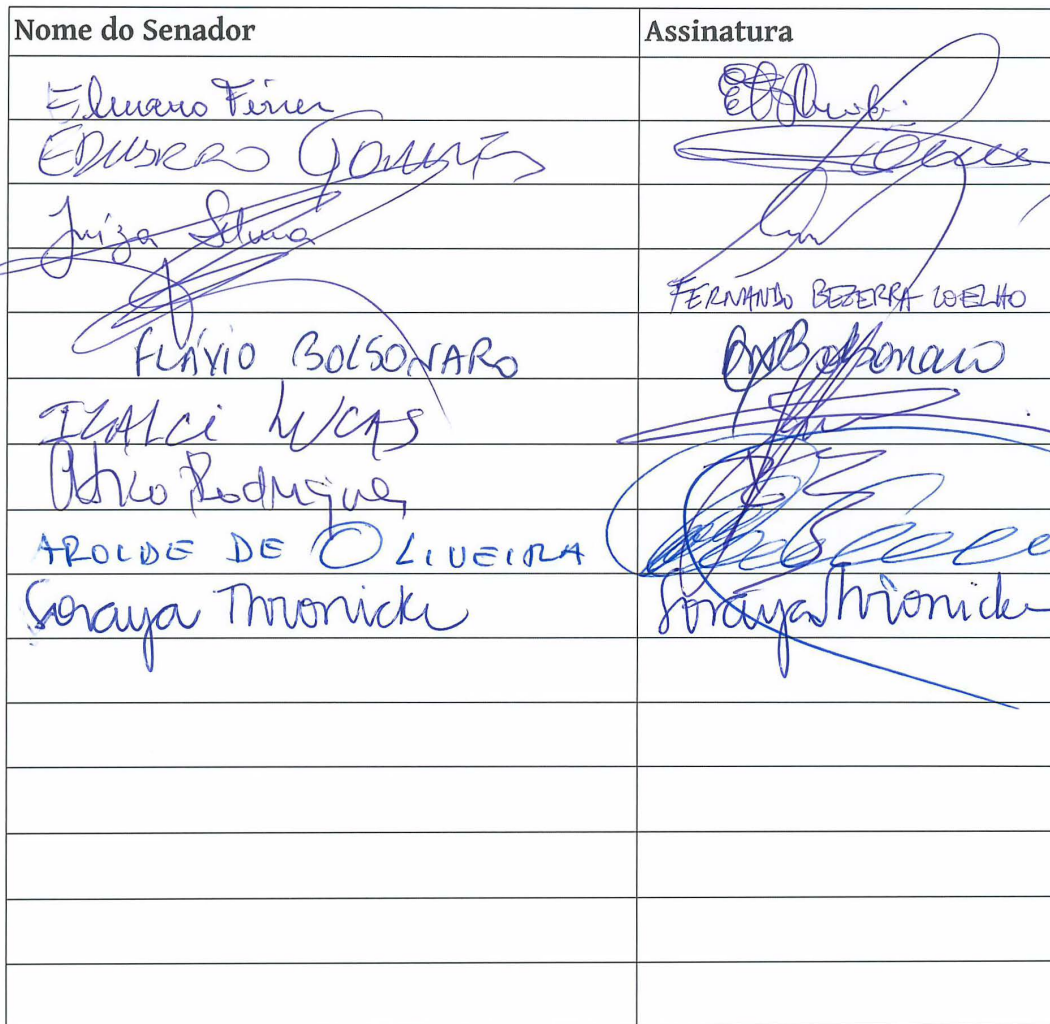 Nome do Senador Assinatura
Elmano Férrer
EDUARDO GOMES
Juíza Selma
FERNANDO BEZERRA COELHO
FLÁVIO BOLSONARO Bolsonaro
IZALCI LUCAS
Chico Rodrigues
AROLDE DE OLIVEIRA
Soraya Thronicke Soraya Thronicke